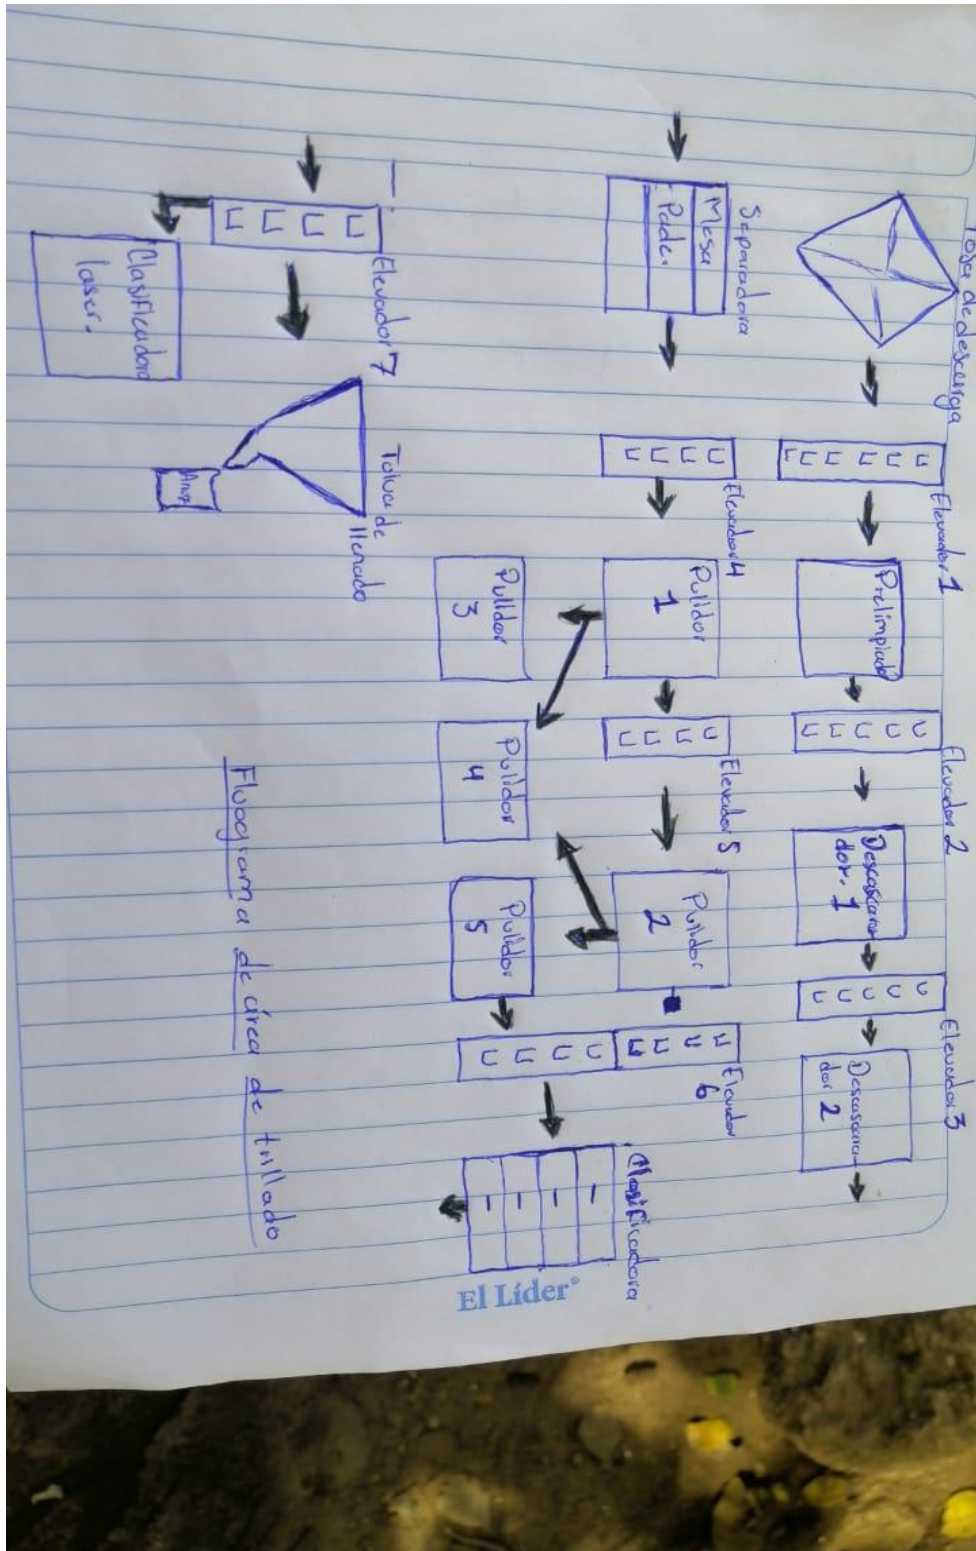 Fosa de descarga
Elevador 1
Prelimpiado
Elevador 2
Descascara
dor. 1
Elevador 3
Descascara
dor 2
Separadora
Mesa
Padi.
Elevador 4
Pulidor
1
Elevador 5
Pulidor
2
Elevador
6
Pulidor
3
Pulidor
4
Pulidor
5
Clasificadora
Elevador 7
Clasificadora
laser.
Tolva de
llenado
Arroz
Flujograma de área de trillado
El Líder®